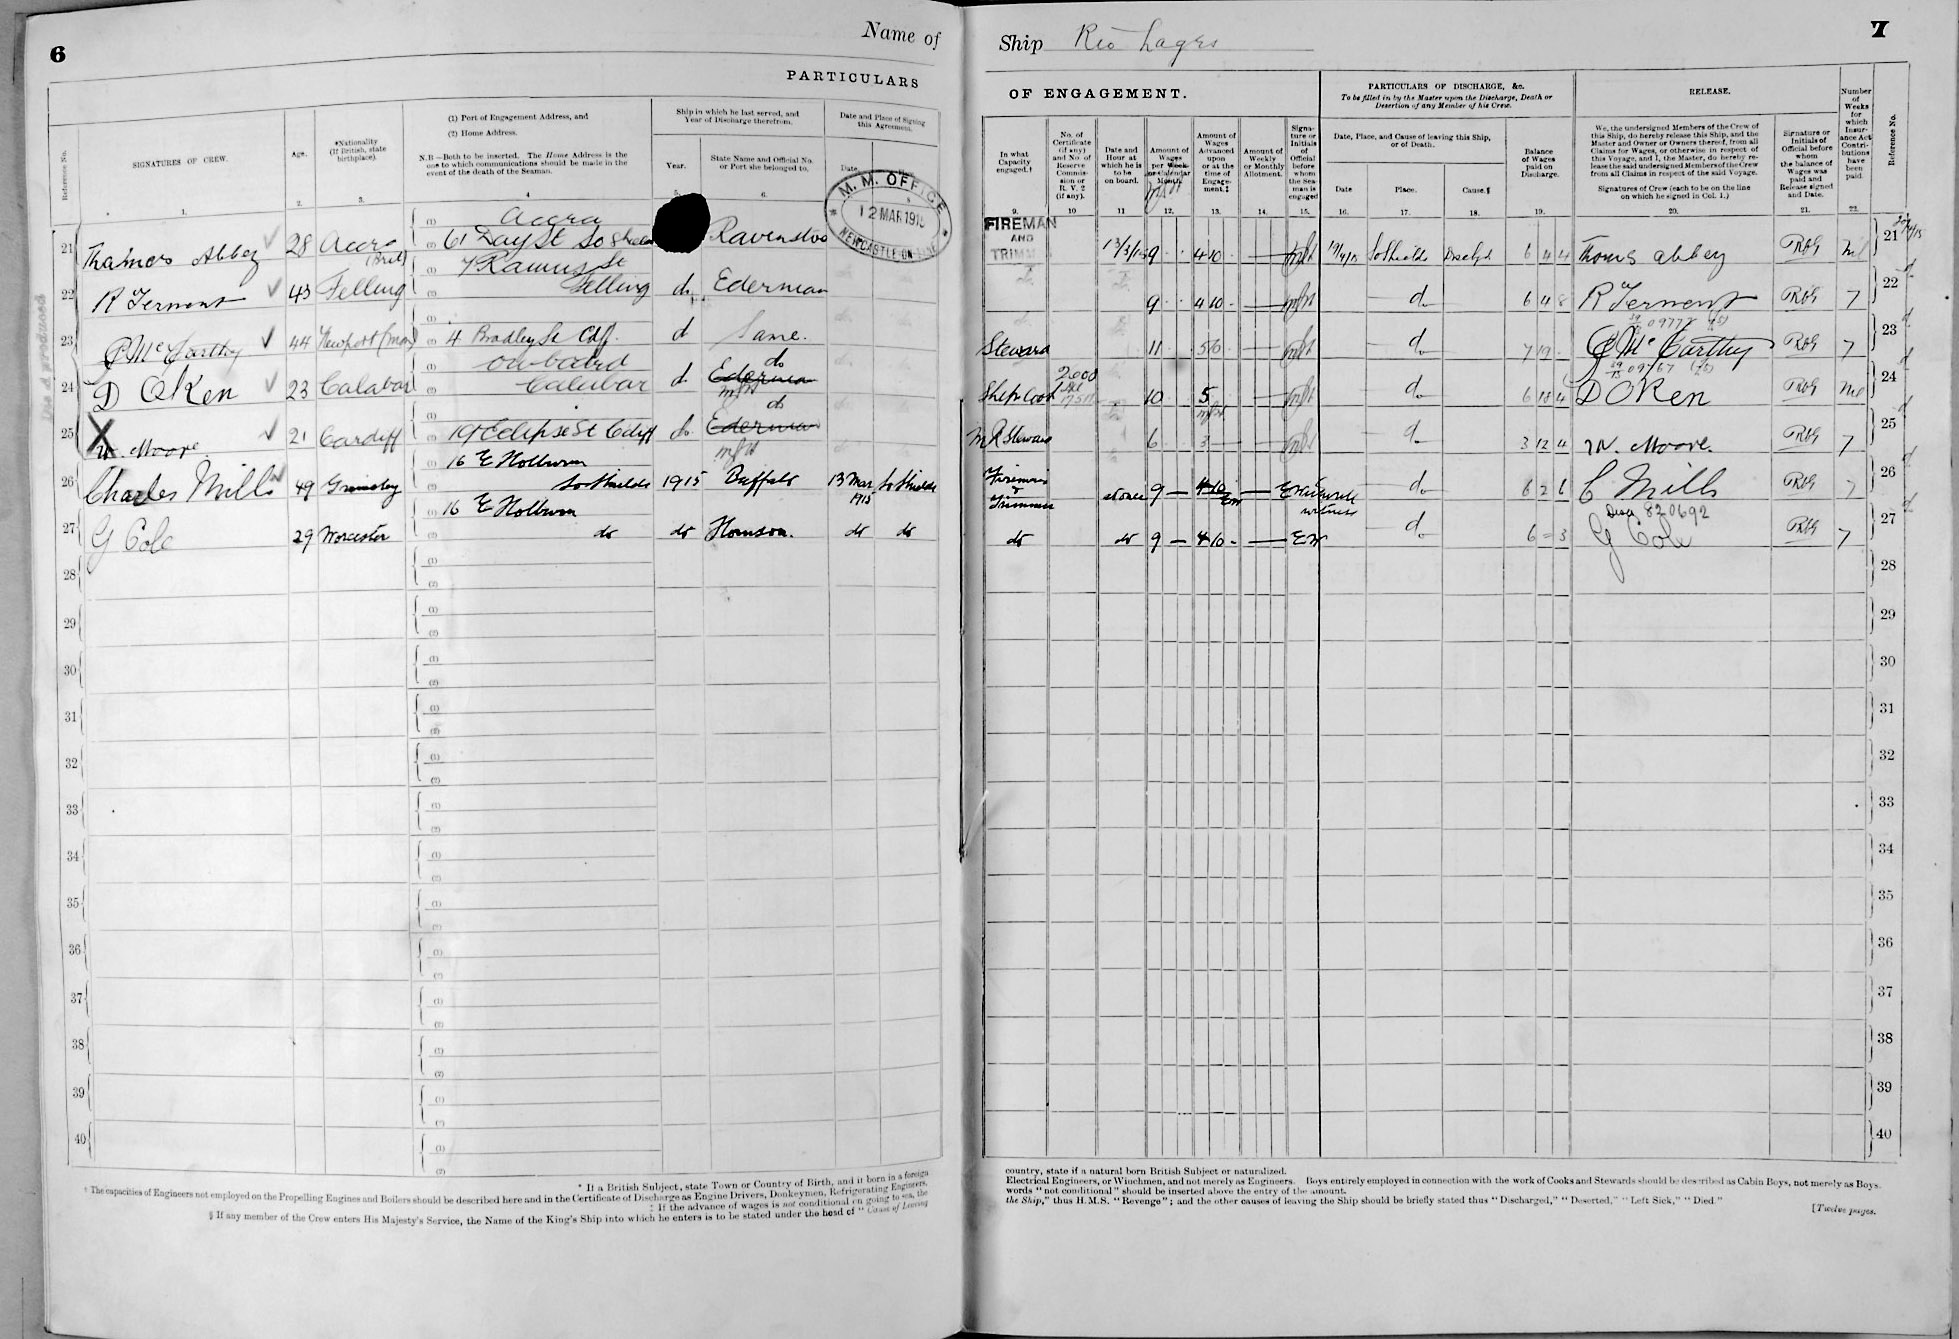 6
Name of
PARTICULARS
Reference No.
SIGNATURES OF CREW.
Age.
*Nationality
(If British, state
birthplace).
(1) Port of Engagement Address, and
(2) Home Address.
N.B—Both to be inserted. The Home Address is the
one to which communications should be made in the
event of the death of the Seaman.
Ship in which he last served, and
Year of Discharge therefrom.
Year.
State Name and Official No.
or Port she belonged to.
Date and Place of Signing
this Agreement.
Date
1. 2. 3. 4 5. 6.
M. M. OFFICE
12 MAR 1915
NEWCASTLE-ON-TYNE
21 Thomas Abbey 28 Accra (Brit)
(1) Accra
(2) 61 Day St So Shields
Ravenstoe
22 R Terment 43 Felling
(1) 7 Ramus St
(2) Felling
do Ederman
23 McCarthy 44 Newport (Mon)
4 Bradley St Cdf.
d Same.
24 D OKen 23 Calabar
on board
Calabar
d do
25 X W. Moore. 21 Cardiff
19 Eclipse St Cdiff
do do
26 Charles Mills 49 Grimsby
16 E Holborn
So Shields 1915 Buffalo 13 Mar 1915 So Shields
27 G Cole 29 Worcester
16 E Holborn
do do Homson. do do
28
29
30
31
32
33
34
35
36
37
38
39
40
* If a British Subject, state Town or Country of Birth, and if born in a foreign
† The capacities of Engineers not employed on the Propelling Engines and Boilers should be described here and in the Certificate of Discharge as Engine Drivers, Donkeymen, Refrigerating Engineers,
‡ If the advance of wages is not conditional on going to sea, the
§ If any member of the Crew enters His Majesty's Service, the Name of the King's Ship into which he enters is to be stated under the head of "Cause of Leaving
7
Ship Rio Lages
OF ENGAGEMENT.
In what
Capacity
engaged.†
No. of
Certificate
(if any)
and No. of
Reserve
Commis-
sion or
R.V. 2
(if any).
Date and
Hour at
which he is
to be
on board.
Amount of
Wages
per Week
or Calendar
Month.
Amount of
Wages
Advanced
upon
or at the
time of
Engage-
ment.‡
Amount of
Weekly
or Monthly
Allotment.
Signa-
ture or
Initials
of
Official
before
whom
the Sea-
man is
engaged
PARTICULARS OF DISCHARGE, &c.
To be filled in by the Master upon the Discharge, Death or
Desertion of any Member of his Crew.
Date, Place, and Cause of leaving this Ship,
or of Death.
Date Place. Cause.§
Balance
of Wages
paid on
Discharge.
RELEASE.
We, the undersigned Members of the Crew of
this Ship, do hereby release this Ship, and the
Master and Owner or Owners thereof, from all
Claims for Wages, or otherwise in respect of
this Voyage, and I, the Master, do hereby re-
lease the said undersigned Members of the Crew
from all Claims in respect of the said Voyage.
Signatures of Crew (each to be on the line
on which he signed in Col. 1.)
Signature or
Initials of
Official before
whom
the balance of
Wages was
paid and
Release signed
and Date.
Number
of
Weeks
for
which
Insur-
ance Act
Contri-
butions
have
been
paid.
Reference No.
9. 10 11 12. 13. 14. 15. 16. 17. 18. 19. 20. 21. 22.
FIREMAN
AND
TRIMMER
13/3/15 9 4 10 So Shields Dischd 6 4 4 Thomas Abbey Nil 21
9 4 10 do 6 4 8 R Terment 7 22
Steward 11 5 10 do 7 19 McCarthy 7 23
Ship Cook 10 5 do 6 18 4 D OKen Nil 24
M R Steward 6 3 do 3 12 4 W. Moore. 7 25
Fireman
&
Trimmer at once 9 4 10 witness do 6 2 6 C Mills 7 26
Disch 820692
do do 9 4 10 EW do 6 - 3 G Cole 7 27
28
29
30
31
32
33
34
35
36
37
38
39
40
country, state if a natural born British Subject or naturalized.
Electrical Engineers, or Winchmen, and not merely as Engineers. Boys entirely employed in connection with the work of Cooks and Stewards should be described as Cabin Boys, not merely as Boys.
words "not conditional" should be inserted above the entry of the amount.
the Ship," thus H.M.S. "Revenge"; and the other causes of leaving the Ship should be briefly stated thus "Discharged," "Deserted," "Left Sick," "Died."
[Twelve pages.